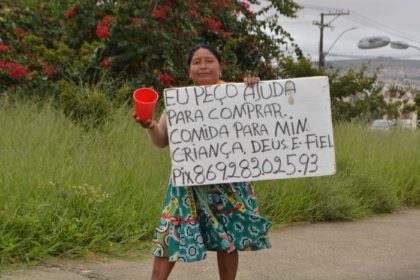 EU PEÇO AJUDA
PARA COMPRAR
COMIDA PARA MIN
CRIANÇA, DEUS. E. FIEL
Pix 869.283.025.93